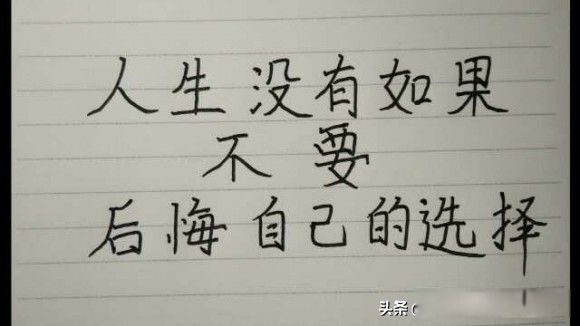 人生没有如果
不要
后悔自己的选择
头条(